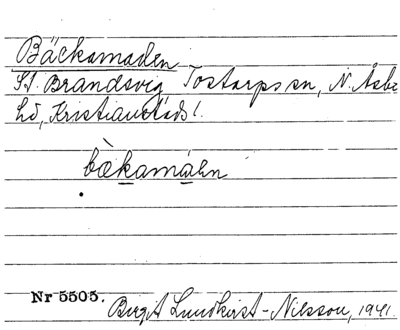 Bäckamaden
St. Brandsvig, Tostarps sn, N. Åsbo
hd, Kristianstads l.
bèkamáhn
Nr 5505.
Birgit Lundkvist-Nilsson, 1941.